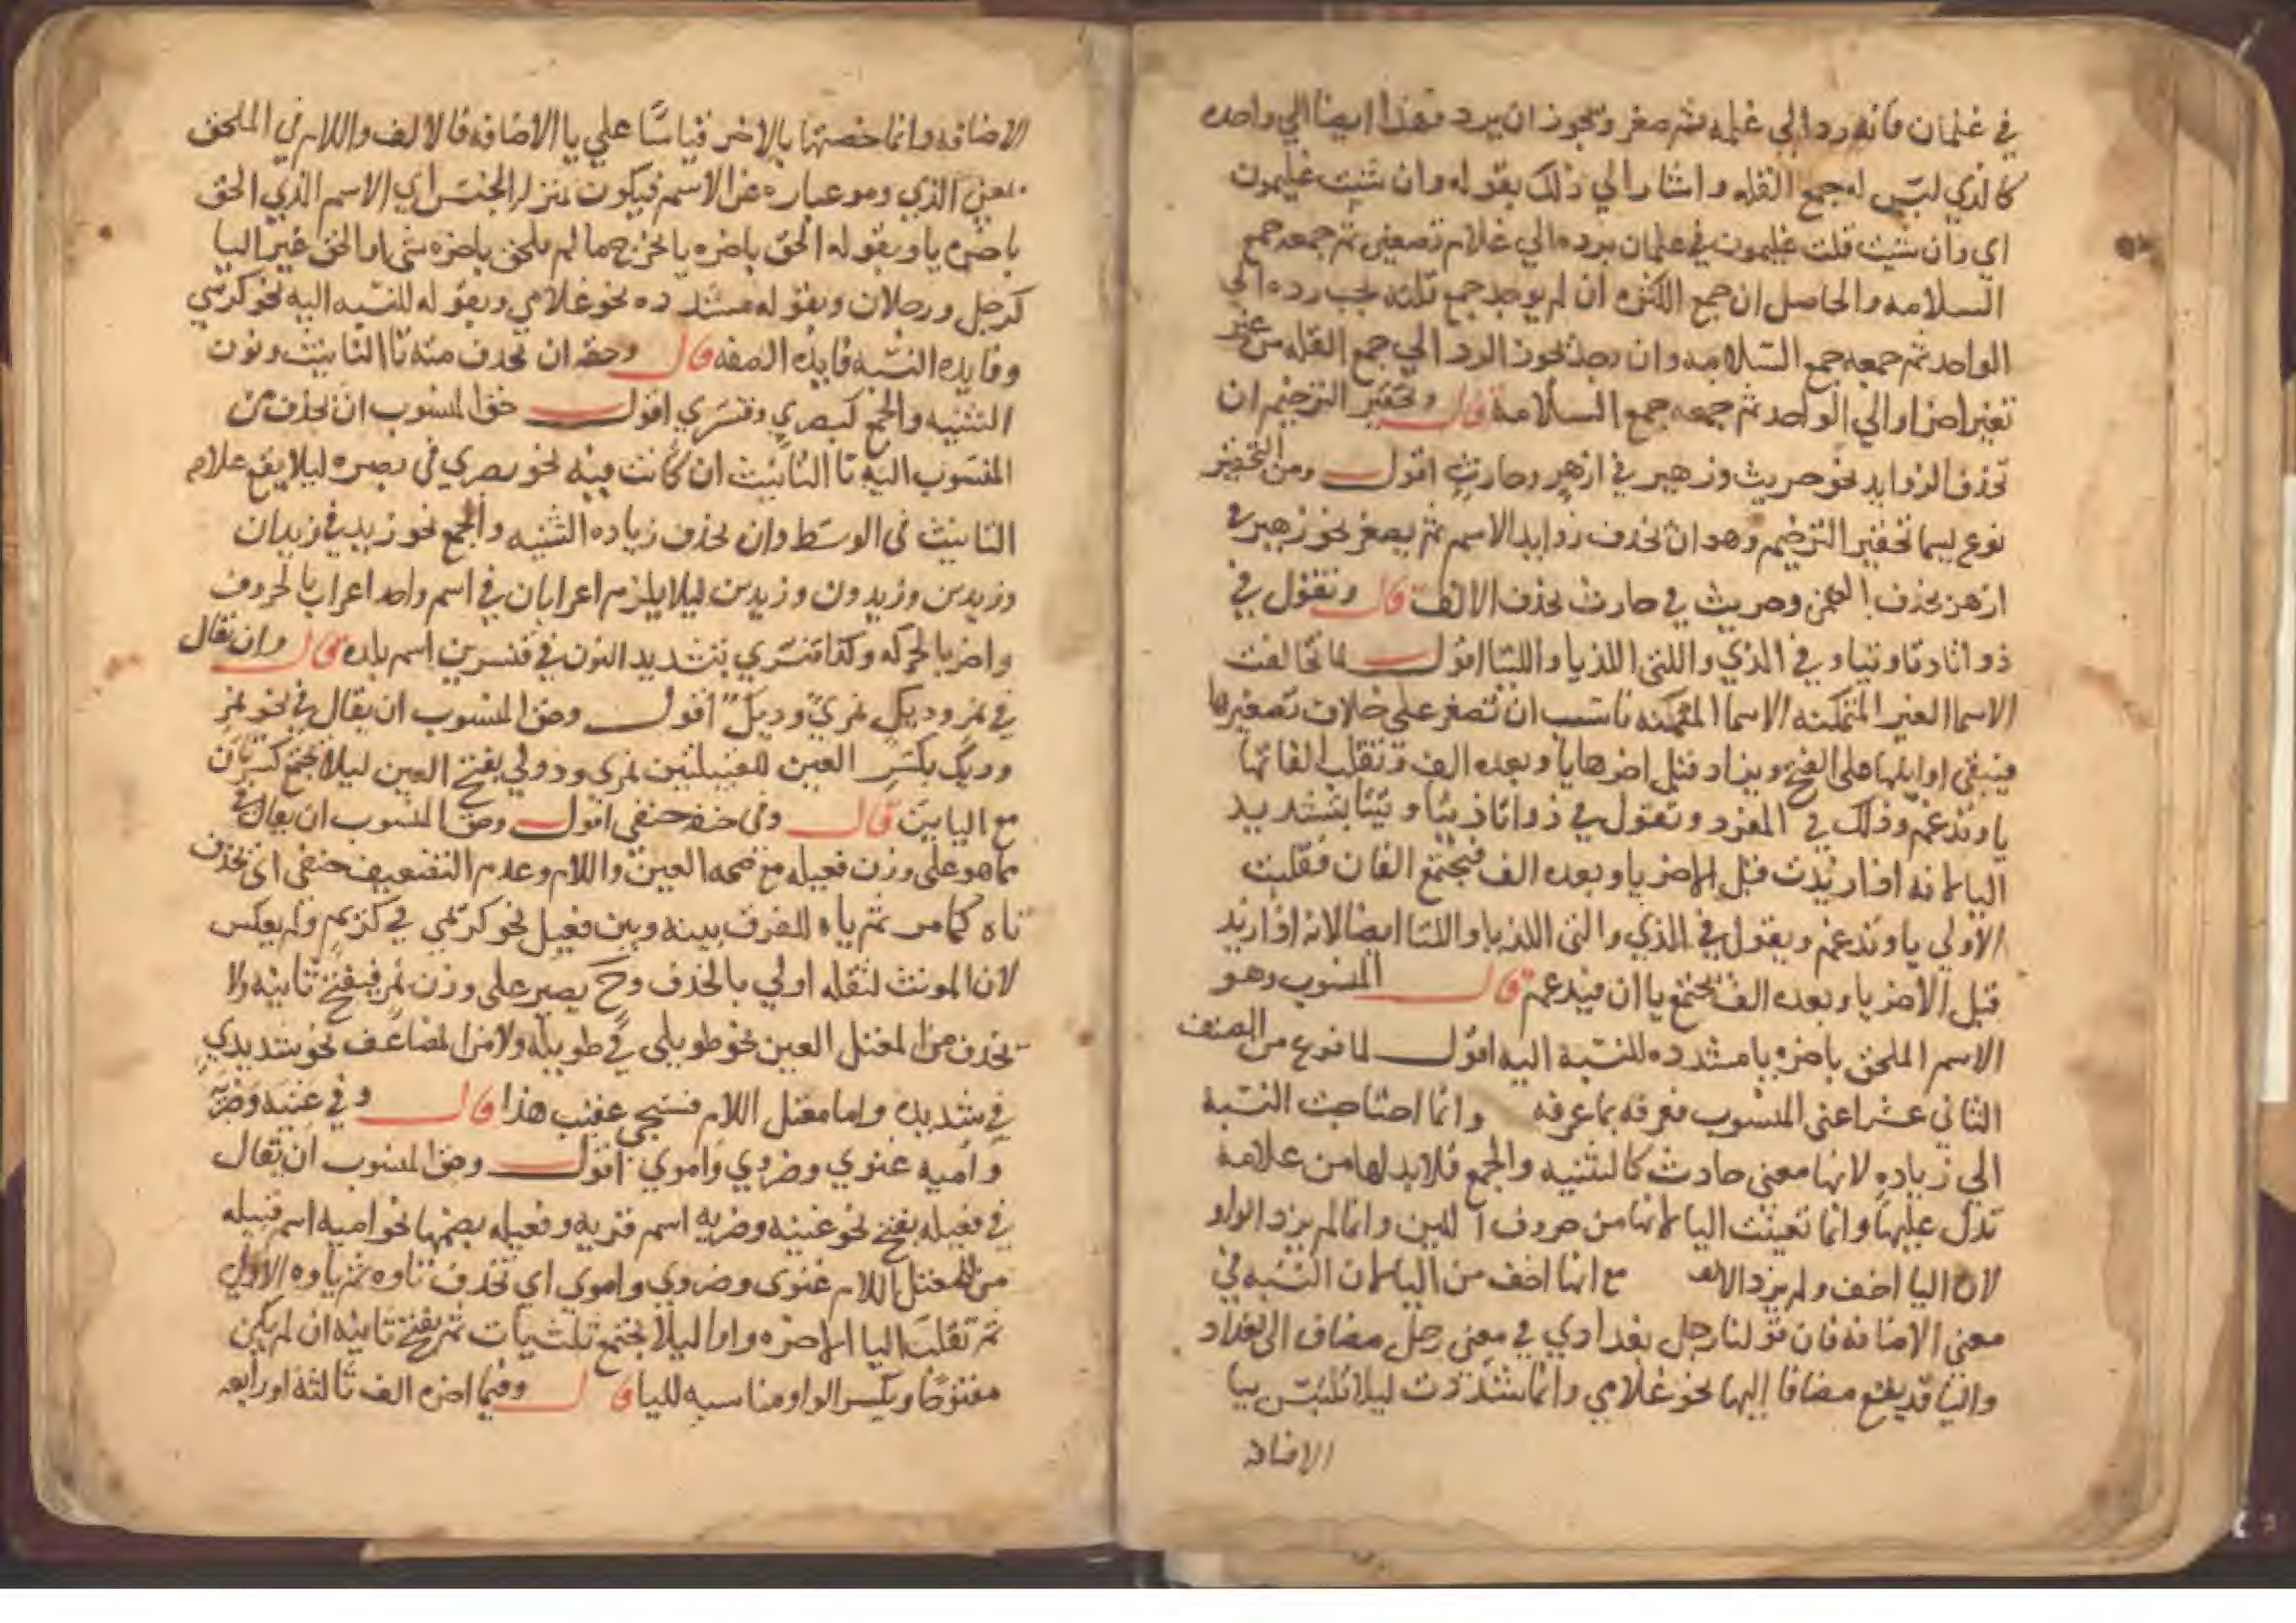 في غلمان فانه رد الي غلمه ثم صغر ويجوز ان يرد هذا ايضا الي واحده
كالذي ليس له جمع القله واشار الي ذلك بقوله وان شيت غليمون
اي وان شيت قلت غليمون في غلمان برده الي غلام تصغير ثم جمعه جمع
السلامه والحاصل ان جمع الكثره ان لم يوجد جمع قلته يجب رده الي
الواحد ثم جمعه جمع السلامه وان وجد يجوز الرد الي جمع القله من غير
تغير اخر او الي الواحد ثم جمعه جمع السلامة قال وتحقير الترخيم ان
تحذف الزوايد نحو حريث وزهير في ازهر وحارث اقول ومن التحقير
نوع يسما تحقير الترخيم وهو ان تحذف زوايد الاسم ثم يصغر نحو زهير في
ازهر بحذف الهمز وحريث في حارث بحذف الالف قال وتقول في
ذو اتا وتا وتيا وفي الذي واللتي اللذيا واللتيا اقول لما تخالفت
الاسما الغير المتمكنه الاسما المتمكنه ناسب ان تصغر على خلاف تصغيرها
فيبقى اوايلها على الفتح ويزاد قبل اخرها يا وبعده الف وتنقلب الفاتها
يا وتدغم وذلك في المفرد وتقول في ذوا تا ذيا وتيا بتشديد
اليا لانه اذا زيدت قبل الاخر يا وبعده الف فيجتمع الفان فقلبت
الاولي يا وتدغم ويقول في الذي والتي اللذيا واللتا ايضا لانه اذا زيد
قبل الاخر يا وبعده الف تجتمع يا ان فيدغم قال المنسوب وهو
الاسم الملحق باخره يا مشدده للنسبة اليه اقول لما فرع من الصنف
الثاني عشر اعني المنسوب فعرفه بما عرفه وانما احتاجت النسبة
الي زياده لانها معني حادث كالتثنيه والجمع فلابد لها من علامة
تدل عليها وانما تعينت اليا لانها من حروف اللين وانما لم يزد الواو
لان اليا اخف ولم يزد الالف مع انها اخف من اليا لان النسبه في
معني الاضافه فان قولنا رجل بغدادي في معني رجل مضاف الى بغداد
واليا قد يقع مضافا اليها نحو غلامي وانما شددت ليلا تلتبس بيا
الاضافه
الاضافه وانما خصتها بالاخر قياسا علي يا الاضافه فالالف واللام في الملحق
بمعني الذي وهو عباره عن الاسم فيكون بمنزله الجنس اي الاسم الذي الحق
باخره يا وبقوله الحق باخره يا يخرج ما لم يلحق باخره شي او الحق غير اليا
كرجل ورجلان وبقوله مشدده نحو غلامي وبقوله للنسبه اليه نحو كرسي
وفايده النسبه فايده الصفه قال وحقه ان تحذف منه تا التانيث ونون
التثنيه والجمع كبصري وقنسري اقول حق المنسوب ان تحذف من
المنسوب اليه تا التانيث ان كانت فيه نحو بصري في بصره ليلا يقع علامه
التانيث في الوسط وان تحذف زياده التثنيه والجمع نحو زيدي في زيدان
وزيدين وزيدون وزيدين ليلا يلزم اعرابان في اسم واحد اعراب بالحروف
واخر بالحركه وكذا قنسري بتشديد النون في قنسرين اسم بلده قال وان تقال
في نمر وديل نمري وديلي اقول وحق المنسوب ان يقال في نحو نمر
وديل بكسر العين للقبيلتين نمري ودولي بفتح العين ليلا تجتمع كسرتان
مع اليايين قال وفي حنفه حنفي اقول وحق المنسوب ان يقال في
ما هو على وزن فعيله مع صحه العين واللام وعدم التضعيف حنفي اي تحذف
تاه كما مر ثم ياه للفرق بينه وبين فعيل نحو كريمي في كريم ولم يعكس
لان المونث لثقله اولي بالحذف وح يصير على وزن نمر فيفتح ثانيه ولا
تحذف من المعتل العين نحو طويلي في طويله ولا من المضاعف نحو شديدي
في شديده واما معتل اللام فسيجي عقيب هذا قال وفي غنيه وضريه
واميه غنوي وضروي واموي اقول وحق المنسوب ان تقال
في فعيله بفتح نحو غنيه وضريه اسم قريه وفعيله بضمها نحو اميه اسم قبيله
من المعتل اللام غنوي وضروي واموي اي تحذف تاوه ثم ياوه الاولي
ثم تقلب اليا الاخره واوا ليلا تجتمع ثلث يات ثم يفتح ثانيه ان لم يكن
مفتوحا ويكسر الواو مناسبه لليا قال وفيما اخره الف ثالثة او رابعه